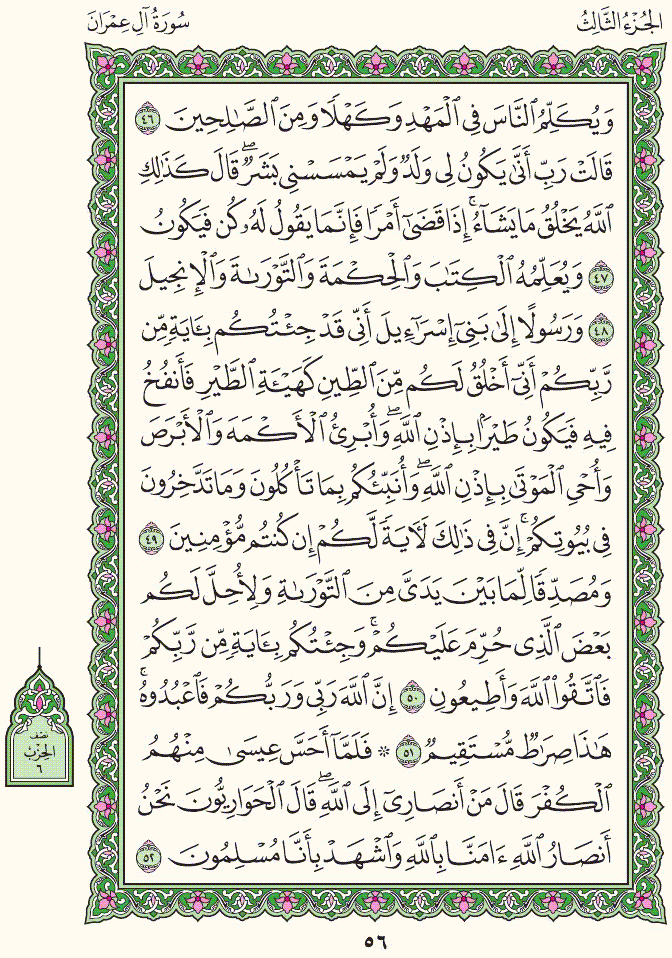 الجُزْءُ الثَّالِثُ
سُورَةُ آلِ عِمْرَانَ
وَيُكَلِّمُ ٱلنَّاسَ فِى ٱلْمَهْدِ وَكَهْلًا وَمِنَ ٱلصَّٰلِحِينَ ٤٦
قَالَتْ رَبِّ أَنَّىٰ يَكُونُ لِى وَلَدٌ وَلَمْ يَمْسَسْنِى بَشَرٌ ۖ قَالَ كَذَٰلِكِ
ٱللَّهُ يَخْلُقُ مَا يَشَآءُ ۚ إِذَا قَضَىٰٓ أَمْرًا فَإِنَّمَا يَقُولُ لَهُۥ كُن فَيَكُونُ
٤٧ وَيُعَلِّمُهُ ٱلْكِتَٰبَ وَٱلْحِكْمَةَ وَٱلتَّوْرَىٰةَ وَٱلْإِنجِيلَ
٤٨ وَرَسُولًا إِلَىٰ بَنِىٓ إِسْرَٰٓءِيلَ أَنِّى قَدْ جِئْتُكُم بِـَٔايَةٍ مِّن
رَّبِّكُمْ ۖ أَنِّىٓ أَخْلُقُ لَكُم مِّنَ ٱلطِّينِ كَهَيْـَٔةِ ٱلطَّيْرِ فَأَنفُخُ
فِيهِ فَيَكُونُ طَيْرًۢا بِإِذْنِ ٱللَّهِ ۖ وَأُبْرِئُ ٱلْأَكْمَهَ وَٱلْأَبْرَصَ
وَأُحْىِ ٱلْمَوْتَىٰ بِإِذْنِ ٱللَّهِ ۖ وَأُنَبِّئُكُم بِمَا تَأْكُلُونَ وَمَا تَدَّخِرُونَ
فِى بُيُوتِكُمْ ۚ إِنَّ فِى ذَٰلِكَ لَـَٔايَةً لَّكُمْ إِن كُنتُم مُّؤْمِنِينَ ٤٩
وَمُصَدِّقًا لِّمَا بَيْنَ يَدَىَّ مِنَ ٱلتَّوْرَىٰةِ وَلِأُحِلَّ لَكُم
بَعْضَ ٱلَّذِى حُرِّمَ عَلَيْكُمْ ۚ وَجِئْتُكُم بِـَٔايَةٍ مِّن رَّبِّكُمْ
فَٱتَّقُوا۟ ٱللَّهَ وَأَطِيعُونِ ٥٠ إِنَّ ٱللَّهَ رَبِّى وَرَبُّكُمْ فَٱعْبُدُوهُ ۗ
هَٰذَا صِرَٰطٌ مُّسْتَقِيمٌ ٥١ ۞ فَلَمَّآ أَحَسَّ عِيسَىٰ مِنْهُمُ
ٱلْكُفْرَ قَالَ مَنْ أَنصَارِىٓ إِلَى ٱللَّهِ ۖ قَالَ ٱلْحَوَارِيُّونَ نَحْنُ
أَنصَارُ ٱللَّهِ ءَامَنَّا بِٱللَّهِ وَٱشْهَدْ بِأَنَّا مُسْلِمُونَ ٥٢
نصف
الحزب
٦
٥٦